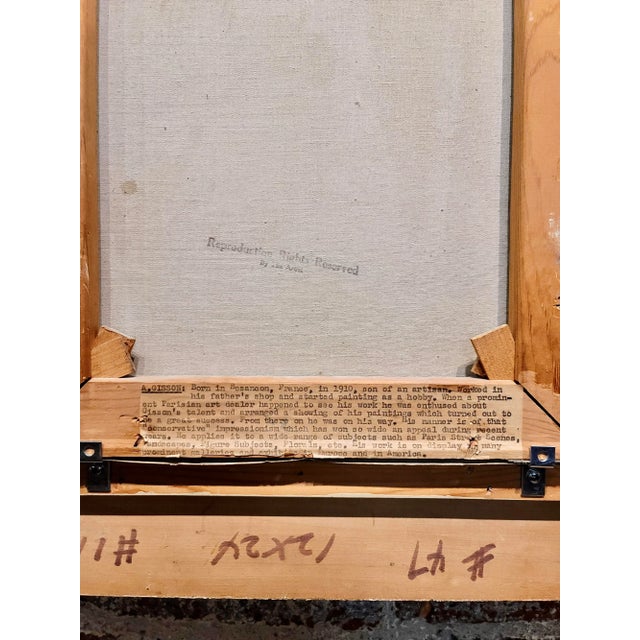 Reproduction Rights Reserved
By The Artist
A.GISSON: Born in Besancon, France, in 1910, son of an artisan. Worked in
his father's shop and started painting as a hobby. When a promin-
ent Parisian art dealer happened to see his work he was enthused about
Gisson's talent and arranged a showing of his paintings which turned out to
be a great success. From there on he was on his way. His manner is of that
"conservative" impressionism which has won so wide an appeal during recent
years. He applies it to a wide range of subjects such as Paris Street Scenes,
Landscapes, Figure Subjects, Florals, etc. His work is on display in many
prominent galleries and Europe and in America.
#11
12X24
#47